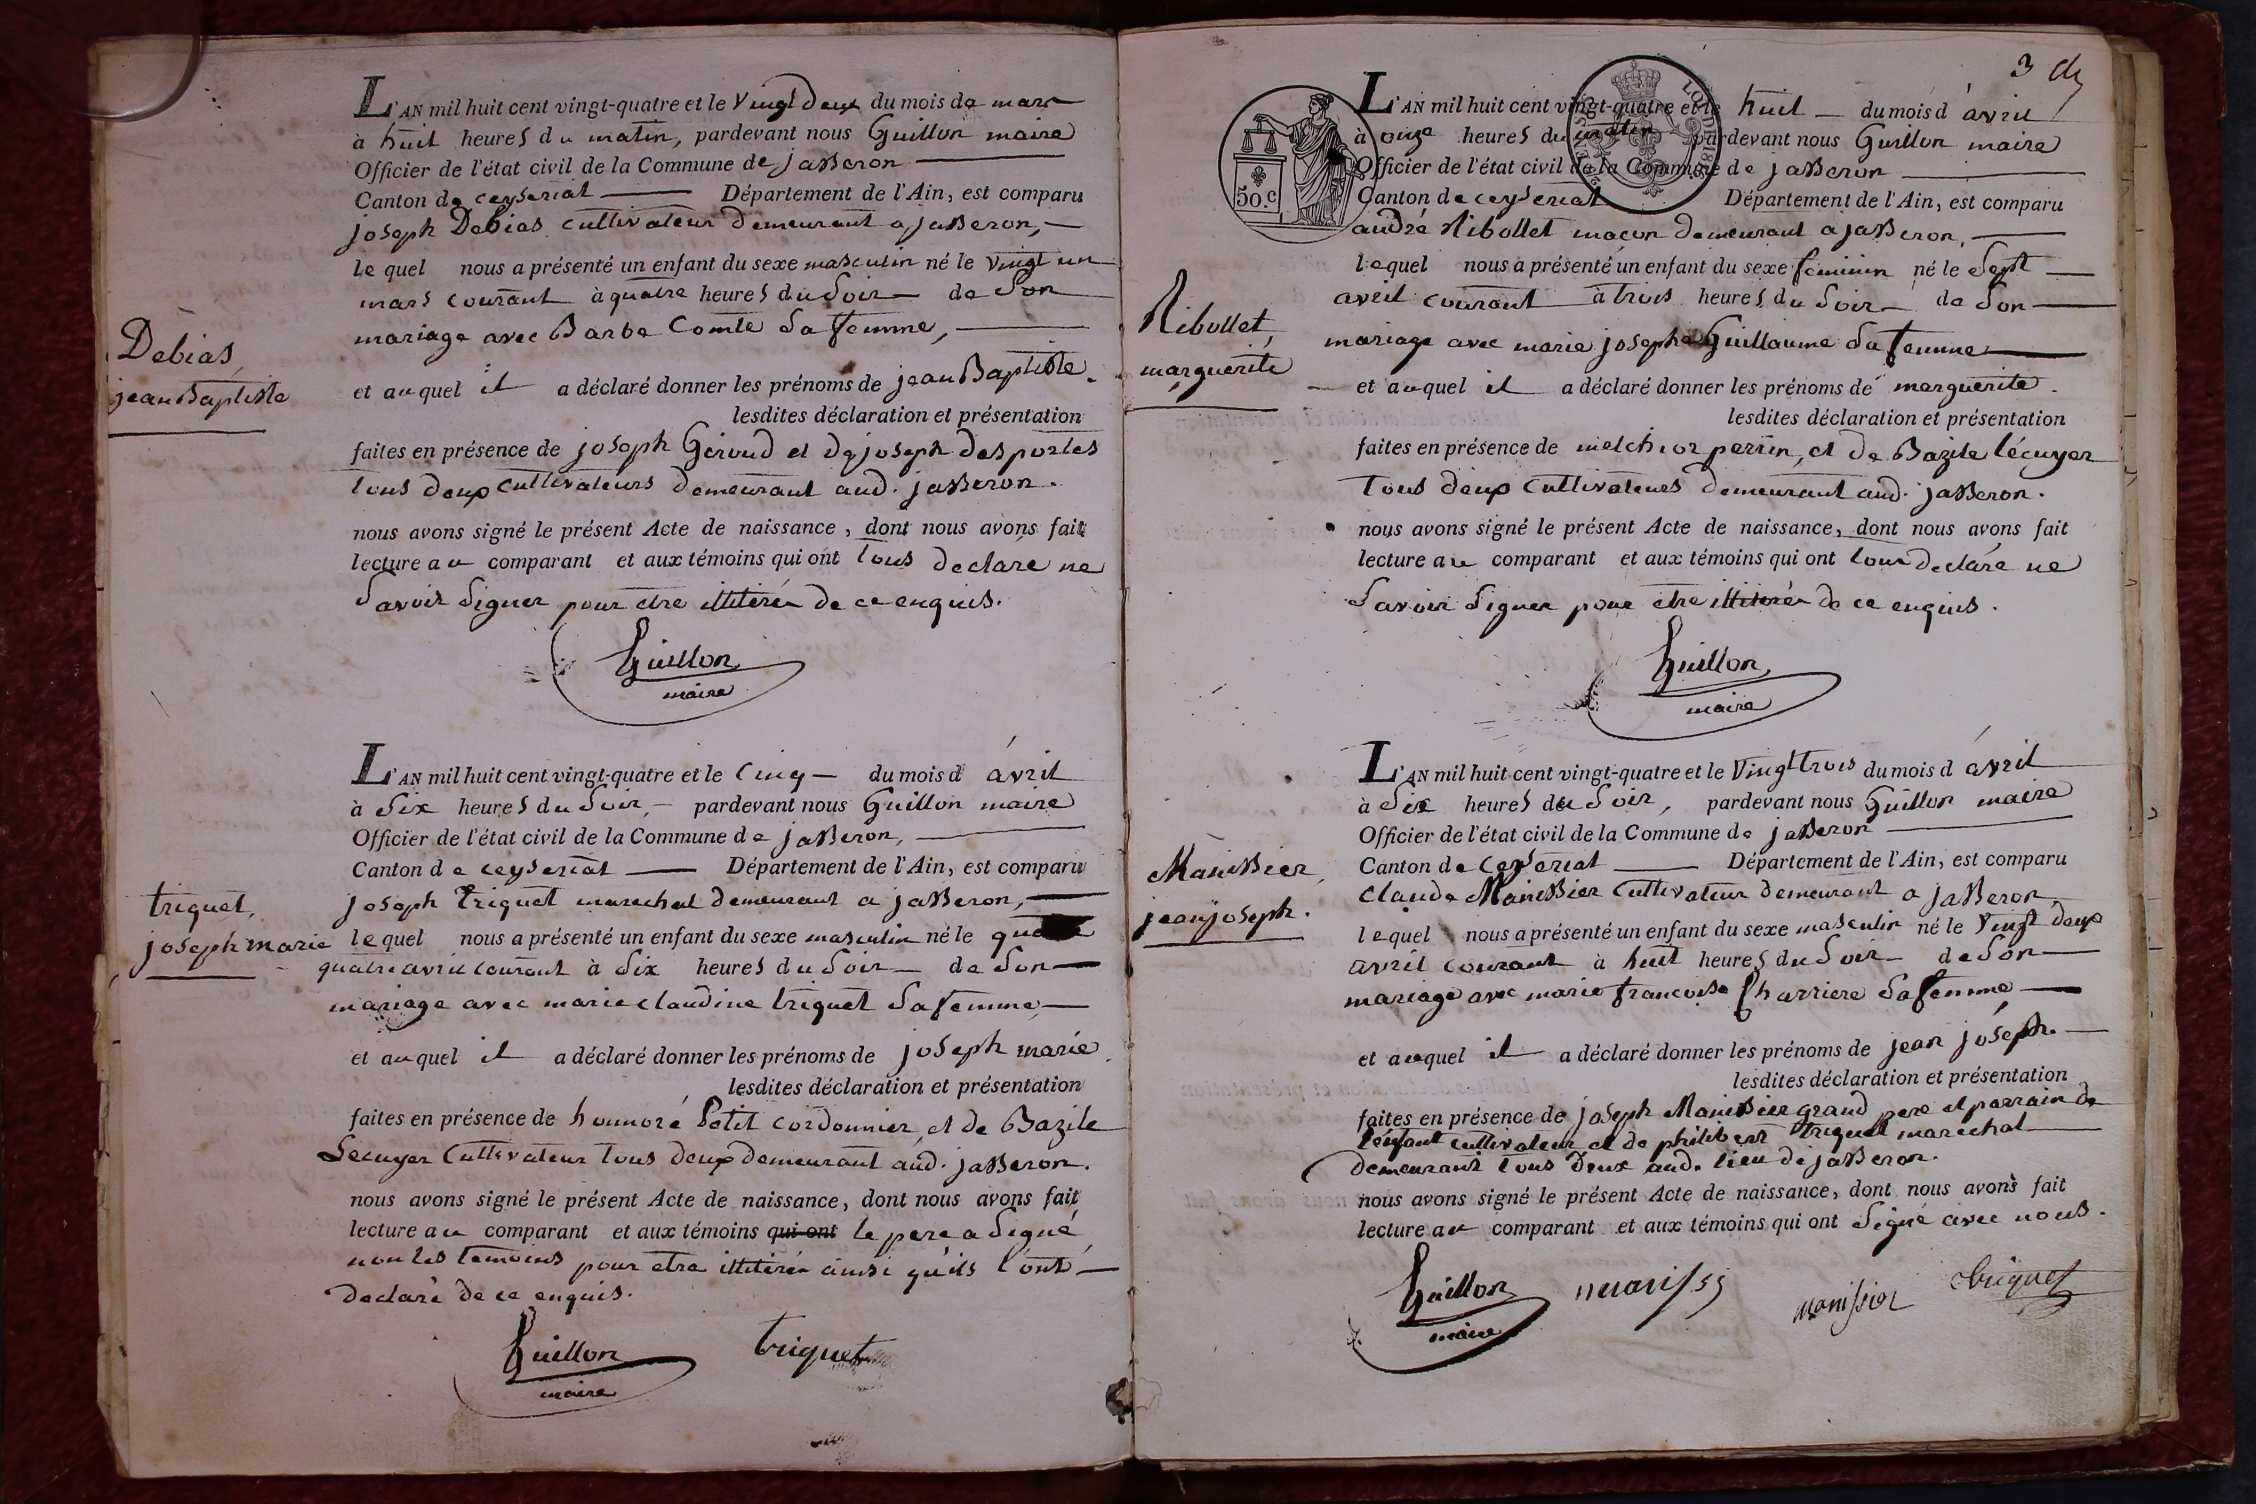 L'AN mil huit cent vingt-quatre et le vingt deux du mois de mars
à huit heures du matin, pardevant nous Guillon maire
Officier de l'état civil de la Commune de jasseron
Canton de ceyseriat Département de l'Ain, est comparu
joseph Debias cultivateur demeurant a jasseron,
le quel nous a présenté un enfant du sexe masculin né le vingt un
mars courant à quatre heures du soir de son
mariage avec Barbe Comte sa femme,
Debias,
jean Baptiste
et auquel il a déclaré donner les prénoms de jean Baptiste.
lesdites déclaration et présentation
faites en présence de joseph Giroud et de joseph desportes
tous deux cultivateurs demeurant aud. jasseron.
nous avons signé le présent Acte de naissance, dont nous avons fait
lecture au comparant et aux témoins qui ont tous declaré ne
savoir signer pour etre illitérés de ce enquis.
Guillon
maire
L'AN mil huit cent vingt-quatre et le cinq du mois d'avril
à six heures du soir, pardevant nous Guillon maire
Officier de l'état civil de la Commune de jasseron,
Canton de ceyseriat Département de l'Ain, est comparu
joseph triquet marechal demeurant a jasseron,
triquet,
joseph marie
le quel nous a présenté un enfant du sexe masculin né le
quatre avril courant à six heures du soir de son
mariage avec marie claudine triquet sa femme,
et auquel il a déclaré donner les prénoms de joseph marie.
lesdites déclaration et présentation
faites en présence de honnoré Petit cordonnier, et de Bazile
Lecuyer cultivateur tous deux demeurant aud. jasseron.
nous avons signé le présent Acte de naissance, dont nous avons fait
lecture au comparant et aux témoins qui ont le pere a signé,
non les temoins pour etre illitérés ainsi qu'ils l'ont
declaré de ce enquis.
Guillon
maire
triquet
3
50.c
L'AN mil huit cent vingt-quatre et le huit du mois d'avril
à onze heures du matin pardevant nous Guillon maire
Officier de l'état civil de la Commune de jasseron
Canton de ceyseriat Département de l'Ain, est comparu
andré Ribollet maçon demeurant a jasseron,
lequel nous a présenté un enfant du sexe feminin né le sept
avril courant à trois heures du soir de son
Ribollet,
marguerite
mariage avec marie josephe Guillaume sa femme
et auquel il a déclaré donner les prénoms de marguerite.
lesdites déclaration et présentation
faites en présence de melchior perrin, et de Bazile lécuyer
tous deux cultivateurs demeurant aud. jasseron.
nous avons signé le présent Acte de naissance, dont nous avons fait
lecture au comparant et aux témoins qui ont tous declaré ne
savoir signer pour etre illitérés de ce enquis.
Guillon
maire
L'AN mil huit cent vingt-quatre et le vingt trois du mois d'avril
à six heures du soir, pardevant nous Guillon maire
Officier de l'état civil de la Commune de jasseron
Canton de ceyseriat Département de l'Ain, est comparu
Claude Manissier cultivateur demeurant a jasseron
Manissier,
jean joseph.
lequel nous a présenté un enfant du sexe masculin né le vingt deux
avril courant à huit heures du soir de son
mariage avec marie francoise Charriere sa femme
et auquel il a déclaré donner les prénoms de jean joseph.
lesdites déclaration et présentation
faites en présence de joseph Manissier grand pere et parrain de
l'enfant cultivateur et de philibert triquet marechal
demeurant tous deux aud. lieu de jasseron.
nous avons signé le présent Acte de naissance, dont nous avons fait
lecture au comparant et aux témoins qui ont signé avec nous.
Guillon
maire
manissier
triquet